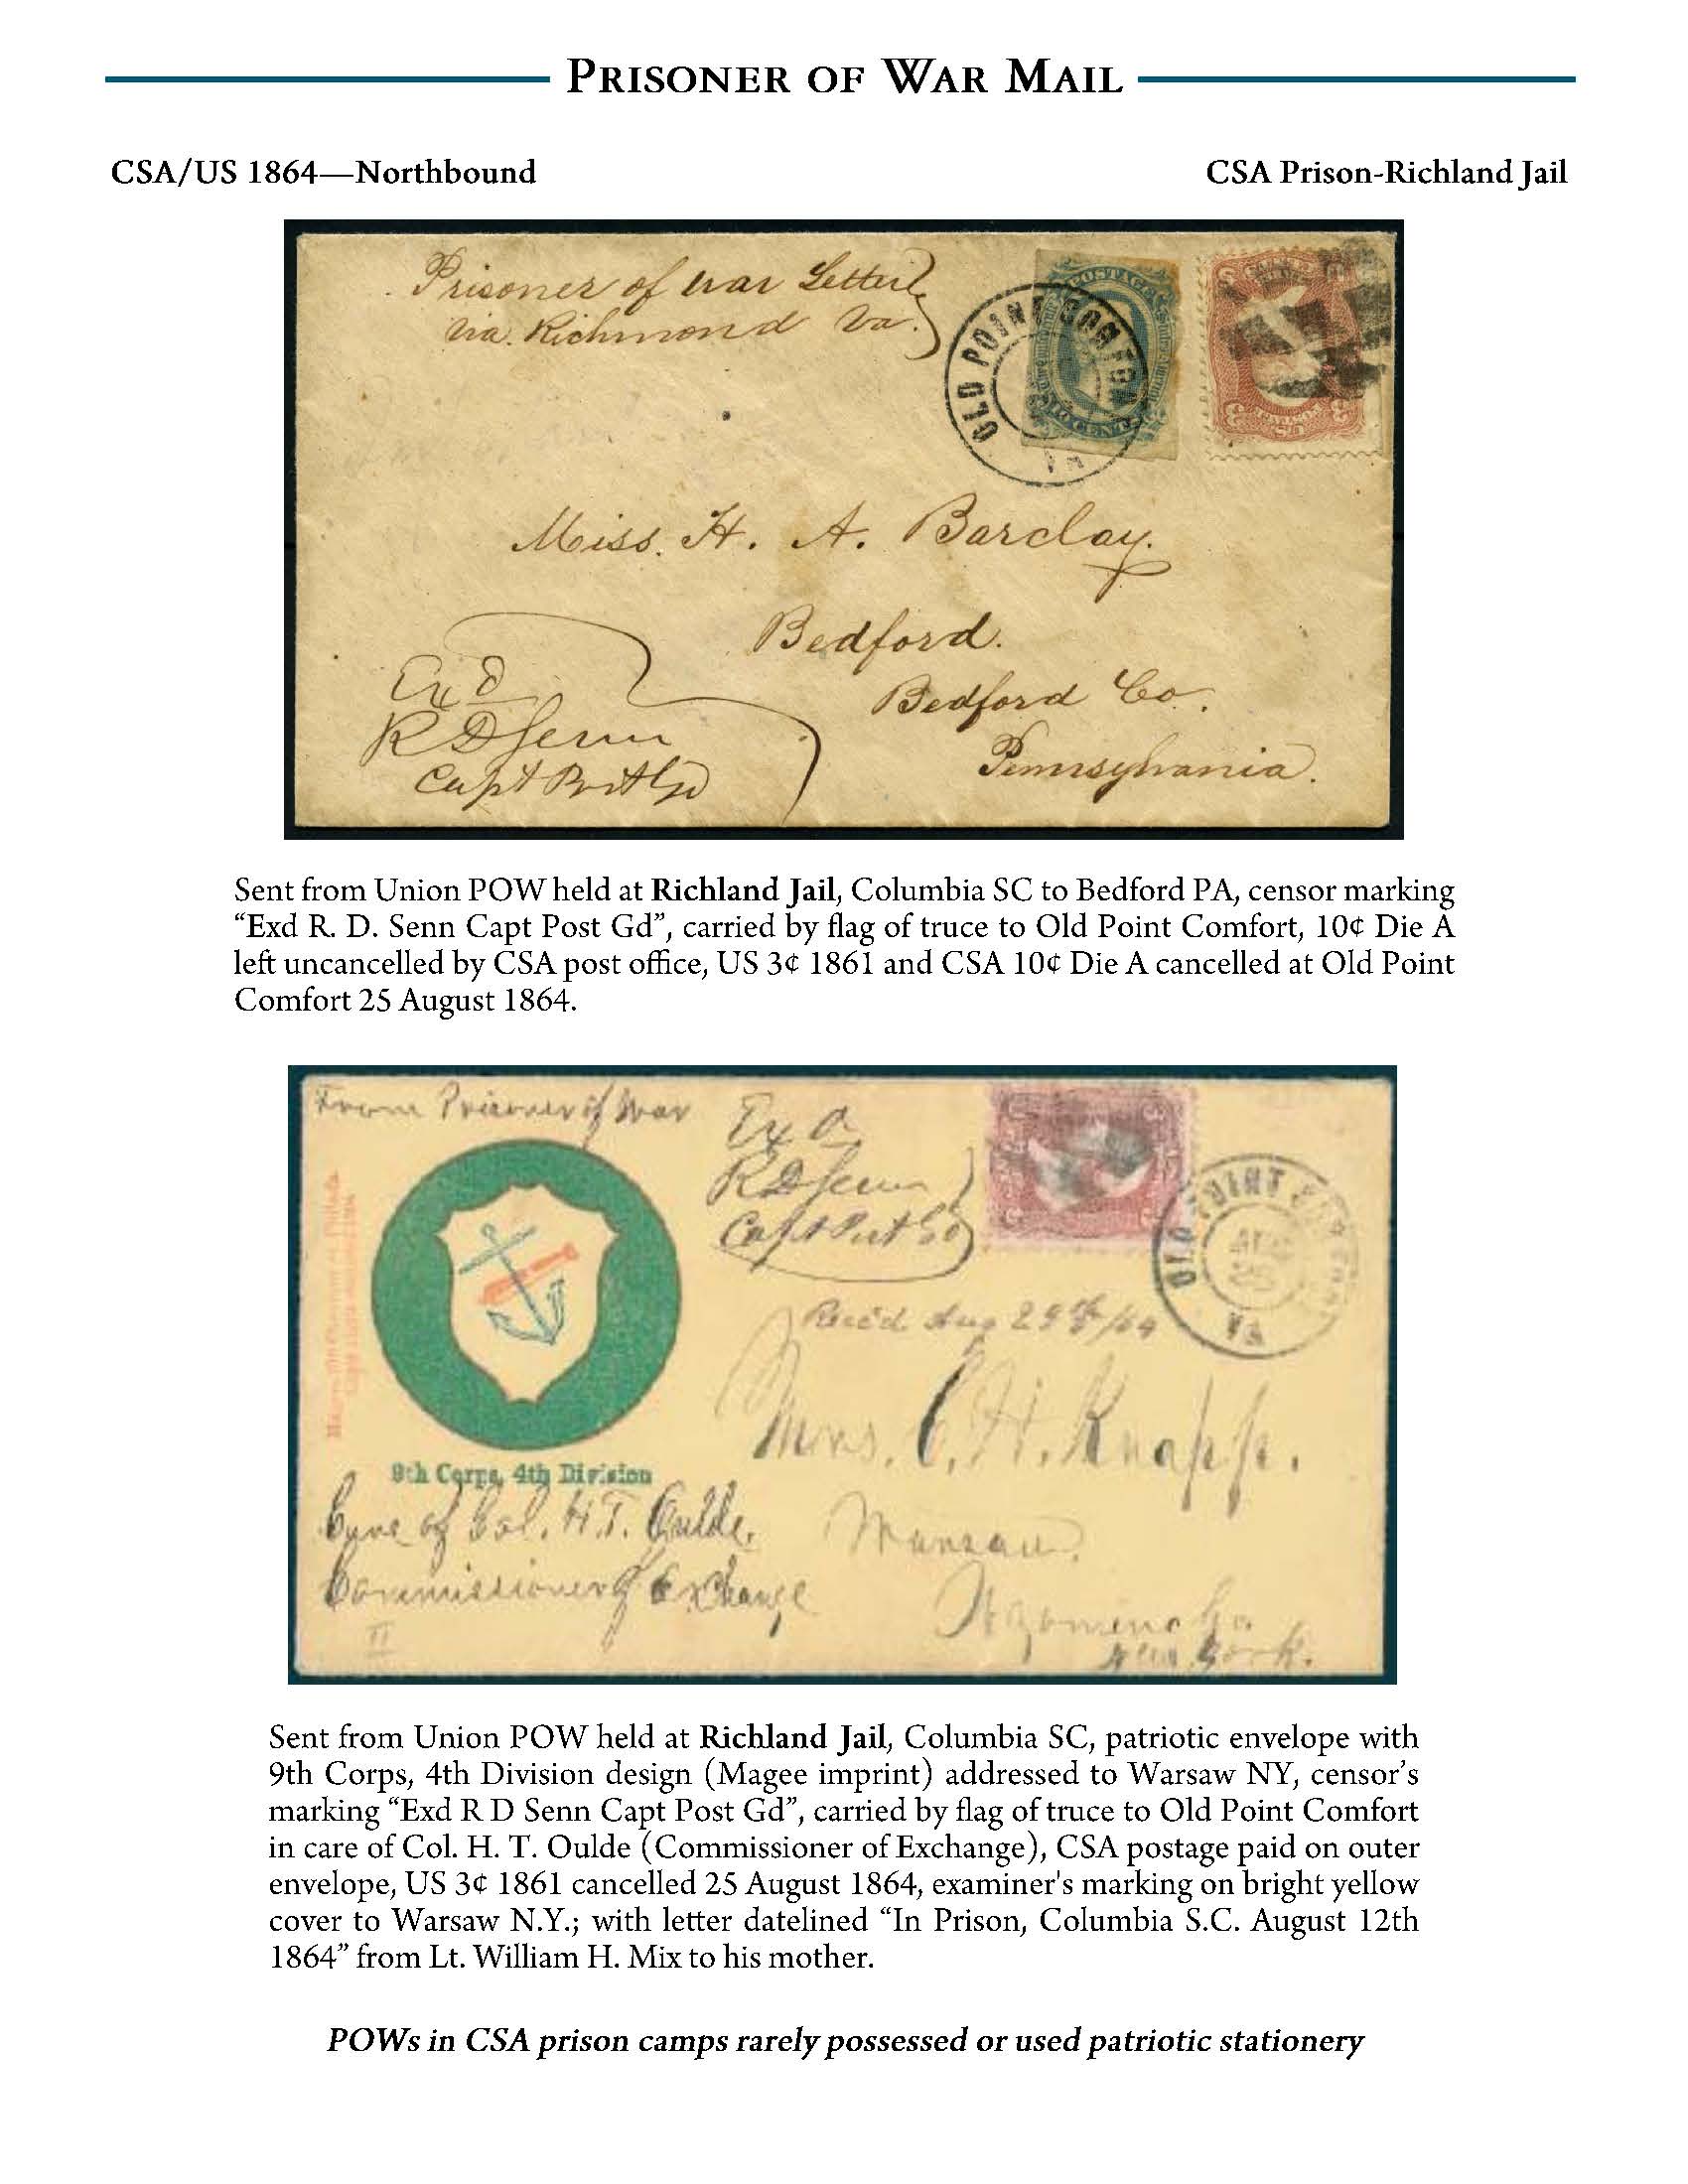 PRISONER OF WAR MAIL
CSA/US 1864—Northbound
CSA Prison-Richland Jail
Prisoner of War Letter
via. Richmond Va.
OLD POINT COMFORT
VA
POSTAGE
TEN CENTS
Miss. H. A. Barclay.
Bedford.
Bedford Co.
Pennsylvania.
Exd
R D Senn
Capt Post Gd
Sent from Union POW held at Richland Jail, Columbia SC to Bedford PA, censor marking
“Exd R. D. Senn Capt Post Gd”, carried by flag of truce to Old Point Comfort, 10¢ Die A
left uncancelled by CSA post office, US 3¢ 1861 and CSA 10¢ Die A cancelled at Old Point
Comfort 25 August 1864.
From Prisoner of War
Exd
R D Senn
Capt Post Gd
OLD POINT COMFORT
AUG
25
VA
Rec'd Aug 29th/64
Mrs. C. H. Knapp.
9th Corps, 4th Division
Care of Col. H. T. Oulde.
Commissioner of Exchange
Warsaw.
Wyoming Co.
New York.
II
Sent from Union POW held at Richland Jail, Columbia SC, patriotic envelope with
9th Corps, 4th Division design (Magee imprint) addressed to Warsaw NY, censor’s
marking “Exd R D Senn Capt Post Gd”, carried by flag of truce to Old Point Comfort
in care of Col. H. T. Oulde (Commissioner of Exchange), CSA postage paid on outer
envelope, US 3¢ 1861 cancelled 25 August 1864, examiner's marking on bright yellow
cover to Warsaw N.Y.; with letter datelined “In Prison, Columbia S.C. August 12th
1864” from Lt. William H. Mix to his mother.
POWs in CSA prison camps rarely possessed or used patriotic stationery